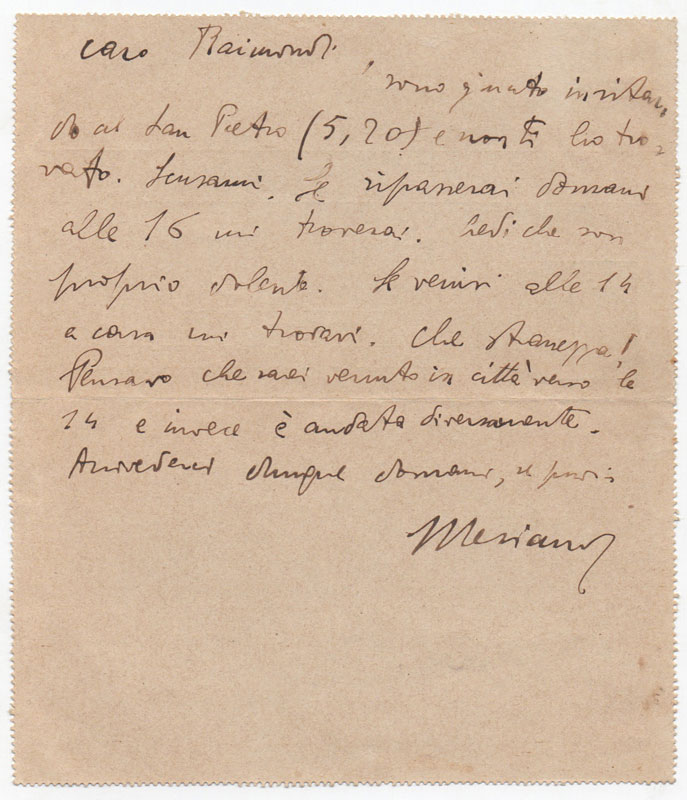 caro Raimondi
sono giunto in ritar-
do al San Pietro (5,20) e non ti ho tro-
vato. Scusami. Se ripasserai domani
alle 16 mi troverai. Vedi che son
proprio dolente. Se venivi alle 14
a casa mi trovavi. Che stranezza!
Pensavo che saresti venuto in città verso le
14 e invece è andata diversamente.
Arrivederci dunque domani, se puoi.
Meriano